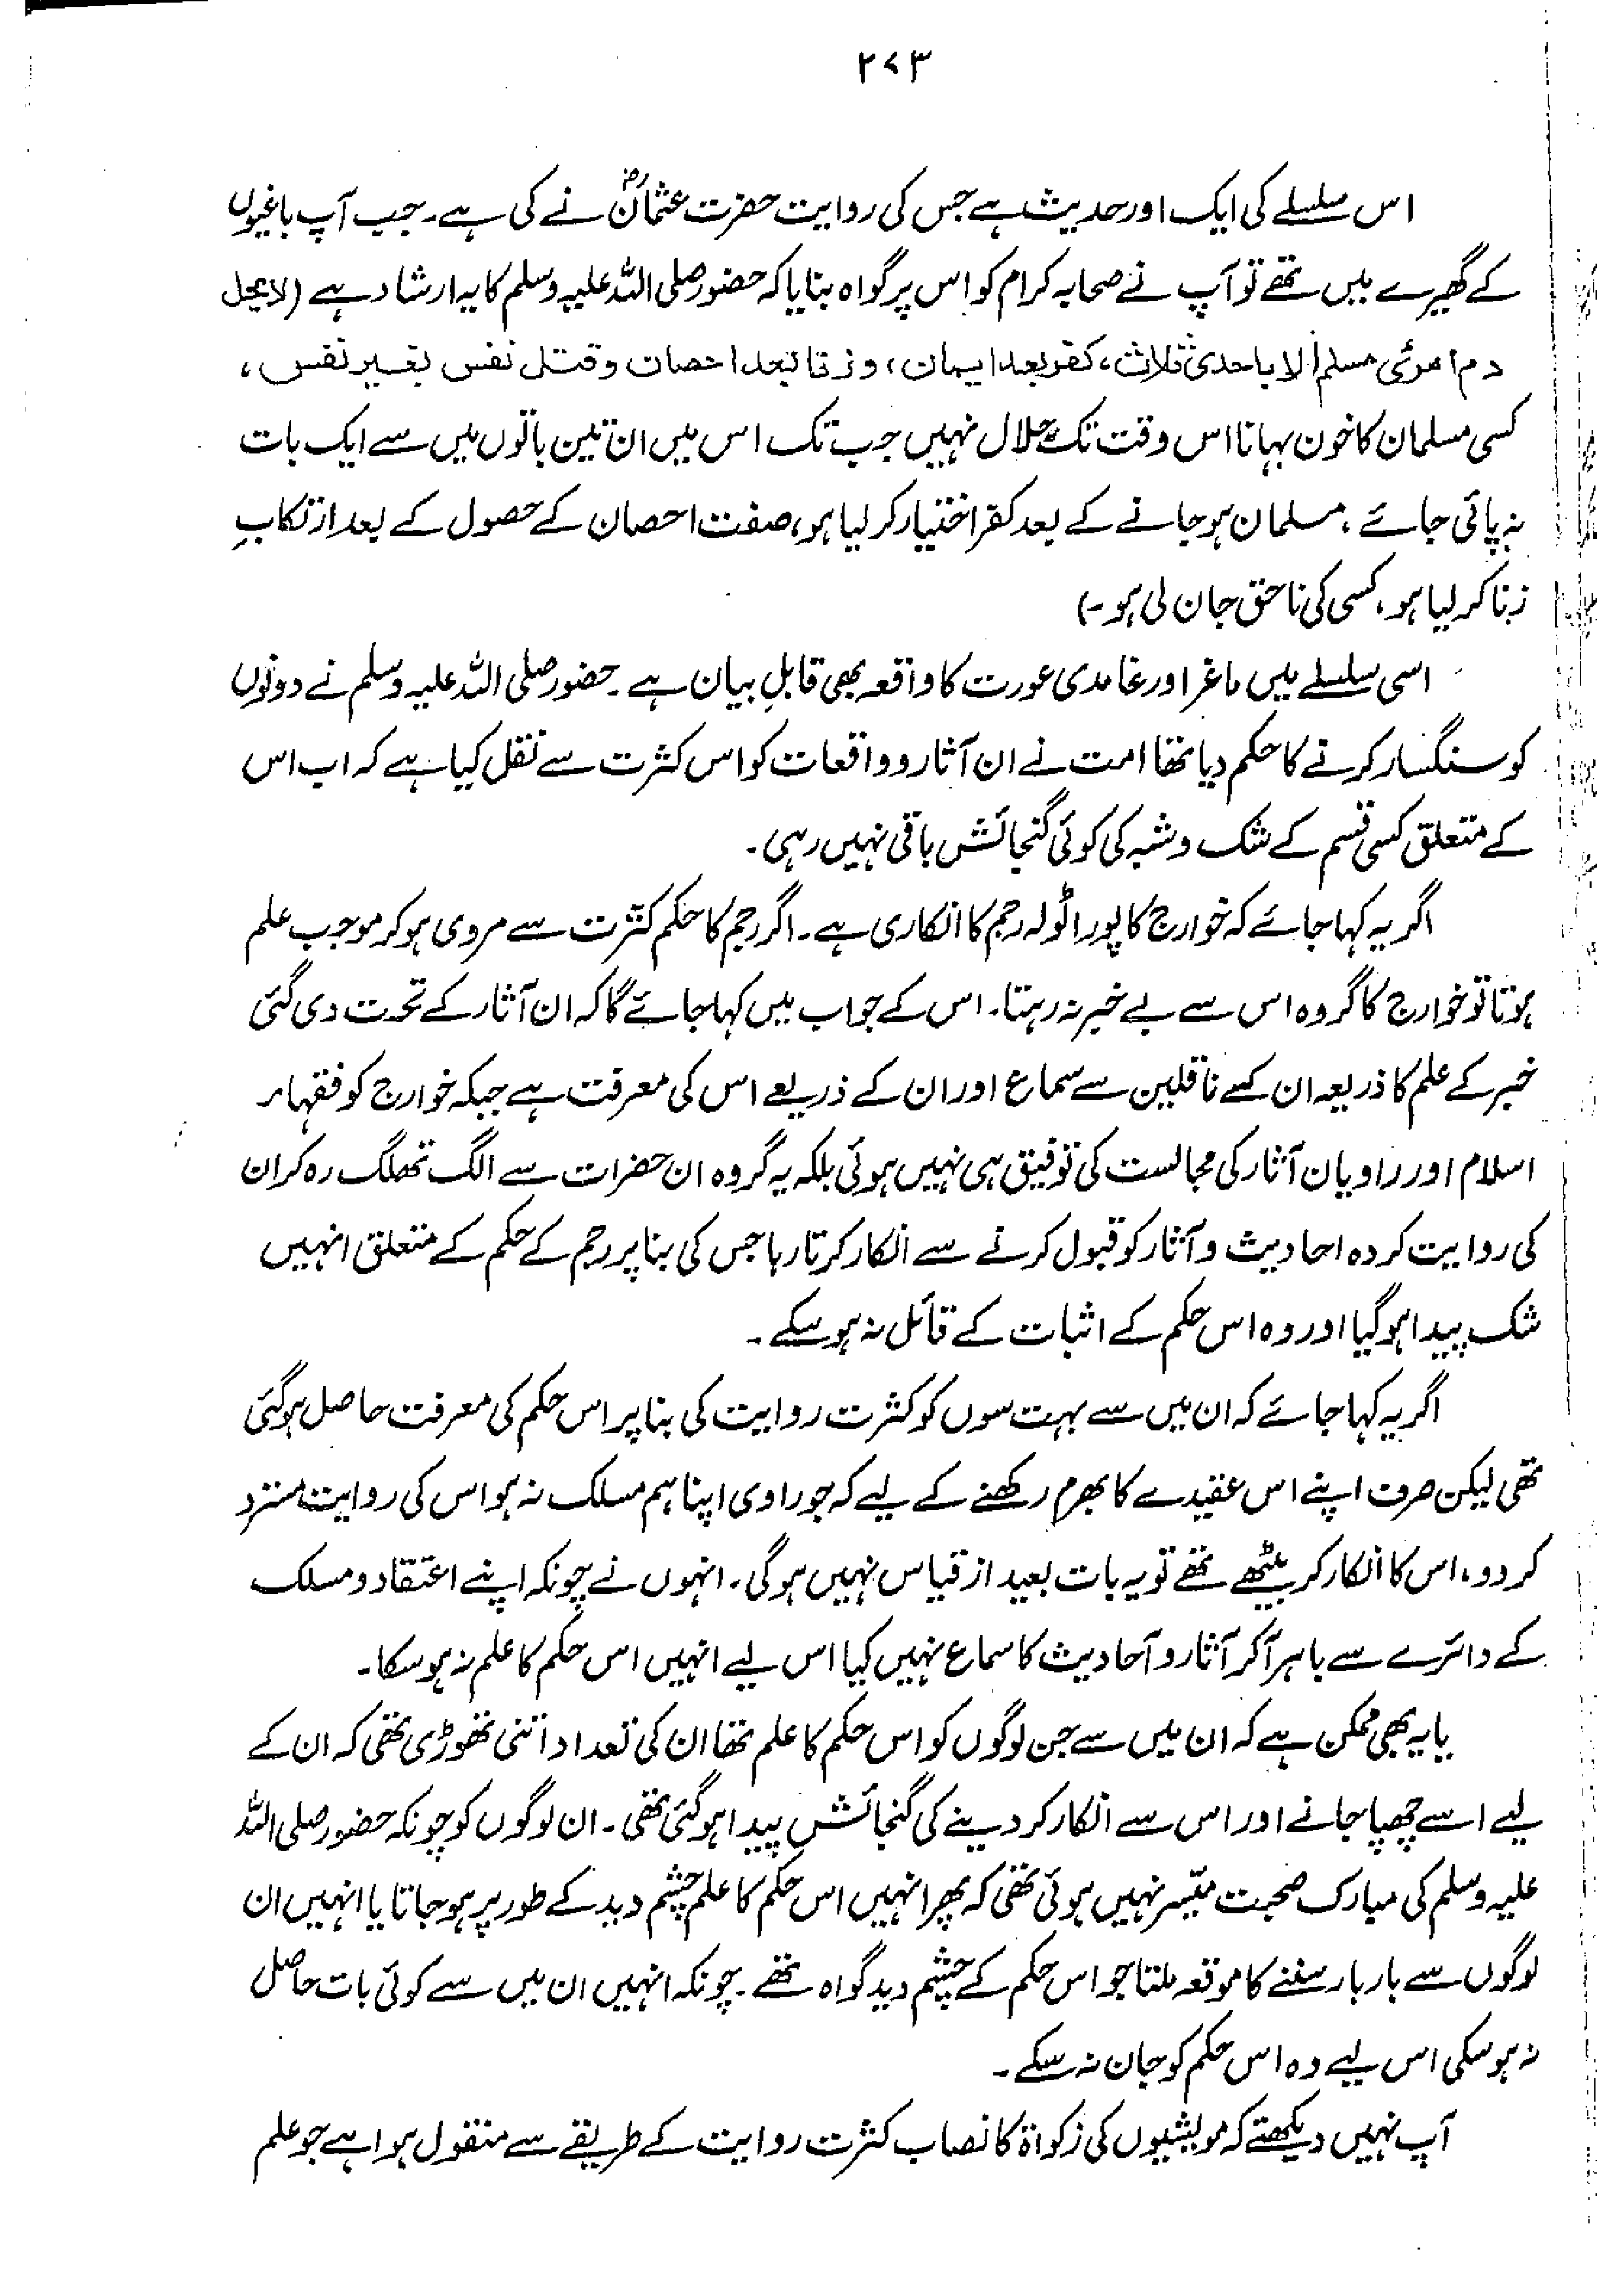 ۲۷۳
اس سلسلے کی ایک اور حدیث ہے جس کی روایت حضرت عثمانؓ نے کی ہے۔ جب آپ باغیوں
کے گھیرے میں تھے تو آپ نے صحابہ کرام کو اس پر گواہ بنایا کہ حضور صلی اللہ علیہ وسلم کا یہ ارشاد ہے (لا یحل
دم امرئ مسلم الا باحدی ثلاث، کفر بعد ایمان، و زنا بعد احصان و قتل نفس بغیر نفس،
کسی مسلمان کا خون بہانا اس وقت تک حلال نہیں جب تک اس میں ان تین باتوں میں سے ایک بات
نہ پائی جائے، مسلمان ہو جانے کے بعد کفر اختیار کر لیا ہو، صفت احصان کے حصول کے بعد ارتکابِ
زنا کر لیا ہو، کسی کی ناحق جان لی ہو۔)
اسی سلسلے میں ماغر اور غامدی عورت کا واقعہ بھی قابلِ بیان ہے۔ حضور صلی اللہ علیہ وسلم نے دونوں
کو سنگسار کرنے کا حکم دیا تھا امت نے ان آثار و واقعات کو اس کثرت سے نقل کیا ہے کہ اب اس
کے متعلق کسی قسم کے شک و شبہ کی کوئی گنجائش باقی نہیں رہی۔
اگر یہ کہا جائے کہ خوارج کا پورا ٹولہ رجم کا انکاری ہے۔ اگر رجم کا حکم کثرت سے مروی ہو کر موجب علم
ہوتا تو خوارج کا گروہ اس سے بے خبر نہ رہتا۔ اس کے جواب میں کہا جائے گا کہ ان آثار کے تحت دی گئی
خبر کے علم کا ذریعہ ان کے ناقلین سے سماع اور ان کے ذریعے اس کی معرفت ہے جبکہ خوارج کو فقہاء
اسلام اور راویان آثار کی مجالست کی توفیق ہی نہیں ہوئی بلکہ یہ گروہ ان حضرات سے الگ تھلگ رہ کر ان
کی روایت کردہ احادیث و آثار کو قبول کرنے سے انکار کرتا رہا جس کی بنا پر رجم کے حکم کے متعلق انہیں
شک پیدا ہو گیا اور وہ اس حکم کے اثبات کے قائل نہ ہو سکے۔
اگر یہ کہا جائے کہ ان میں سے بہت سوں کو کثرت روایت کی بنا پر اس حکم کی معرفت حاصل ہو گئی
تھی لیکن صرف اپنے اس عقیدے کا بھرم رکھنے کے لیے کہ جو راوی اپنا ہم مسلک نہ ہو اس کی روایت مسترد
کر دو، اس کا انکار کر بیٹھے تھے تو یہ بات بعید از قیاس نہیں ہوگی۔ انہوں نے چونکہ اپنے اعتقاد و مسلک
کے دائرے سے باہر آ کر آثار و آحادیث کا سماع نہیں کیا اس لیے انہیں اس حکم کا علم نہ ہو سکا۔
یا یہ بھی ممکن ہے کہ ان میں سے جن لوگوں کو اس حکم کا علم تھا ان کی تعداد اتنی تھوڑی تھی کہ ان کے
لیے اسے چھپا جانے اور اس سے انکار کر دینے کی گنجائش پیدا ہو گئی تھی۔ ان لوگوں کو چونکہ حضور صلی اللہ
علیہ وسلم کی مبارک صحبت میّسر نہیں ہوئی تھی کہ پھر انہیں اس حکم کا علم چشم دید کے طور پر ہو جاتا یا انہیں ان
لوگوں سے بار بار سننے کا موقعہ ملتا جو اس حکم کے چشم دید گواہ تھے۔ چونکہ انہیں ان میں سے کوئی بات حاصل
نہ ہو سکی اس لیے وہ اس حکم کو جان نہ سکے۔
آپ نہیں دیکھتے کہ مویشیوں کی زکواۃ کا نصاب کثرت روایت کے طریقے سے منقول ہوا ہے جو علم